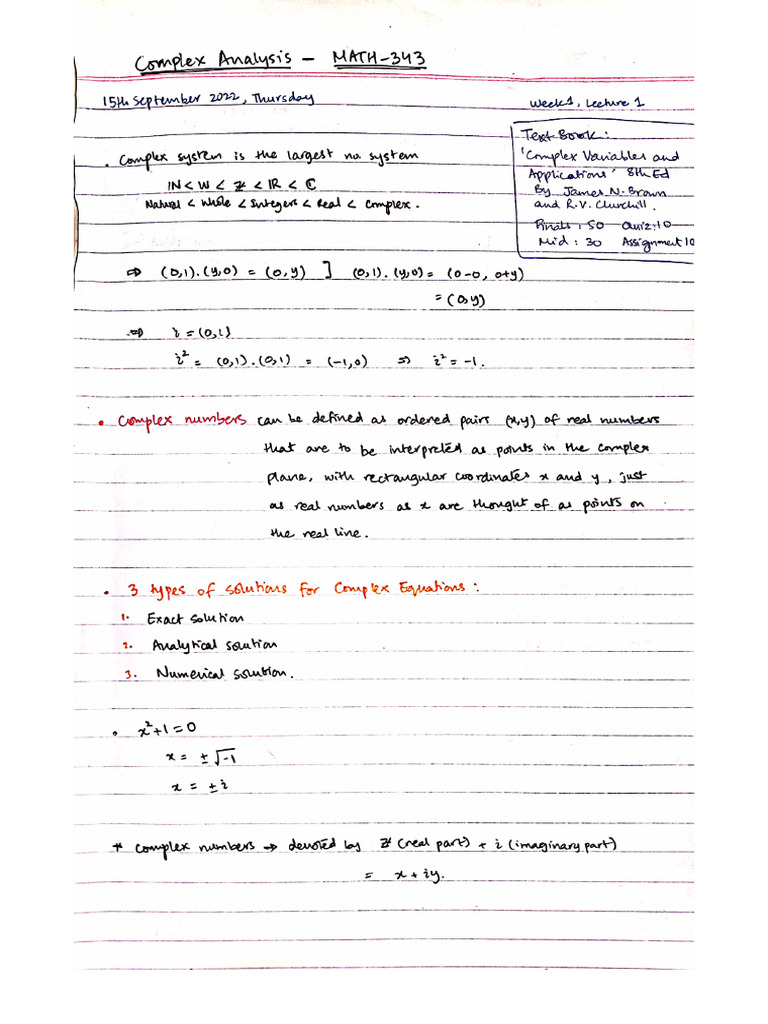 Complex Analysis – MATH-343
15th September 2022, Thursday
Week 1, Lecture 1
Text Book:
'Complex Variables and
Applications' 8th Ed
By James N. Brown
and R.V. Churchill.
Finals: 50 Quiz: 10
Mid: 30 Assignment 10
. Complex system is the largest no. system
IN < W < Z < IR < ℂ
Natural < Whole < Integers < Real < Complex.
⇒ (0,1).(y,0) = (0,y) ] (0,1).(y,0) = (0-0, 0+y)
= (0,y)
⇒ i = (0,1)
i² = (0,1).(0,1) = (-1,0) ⇒ i² = -1.
• Complex numbers can be defined as ordered pairs (x,y) of real numbers
that are to be interpreted as points in the complex
plane, with rectangular coordinates x and y, just
as real numbers as x are thought of as points on
the real line.
• 3 types of solutions for Complex Equations:
1. Exact solution
2. Analytical solution
3. Numerical solution.
• x²+1=0
x = ±√-1
x = ±i
* Complex numbers → denoted by Z (real part) + i (imaginary part)
= x + iy.